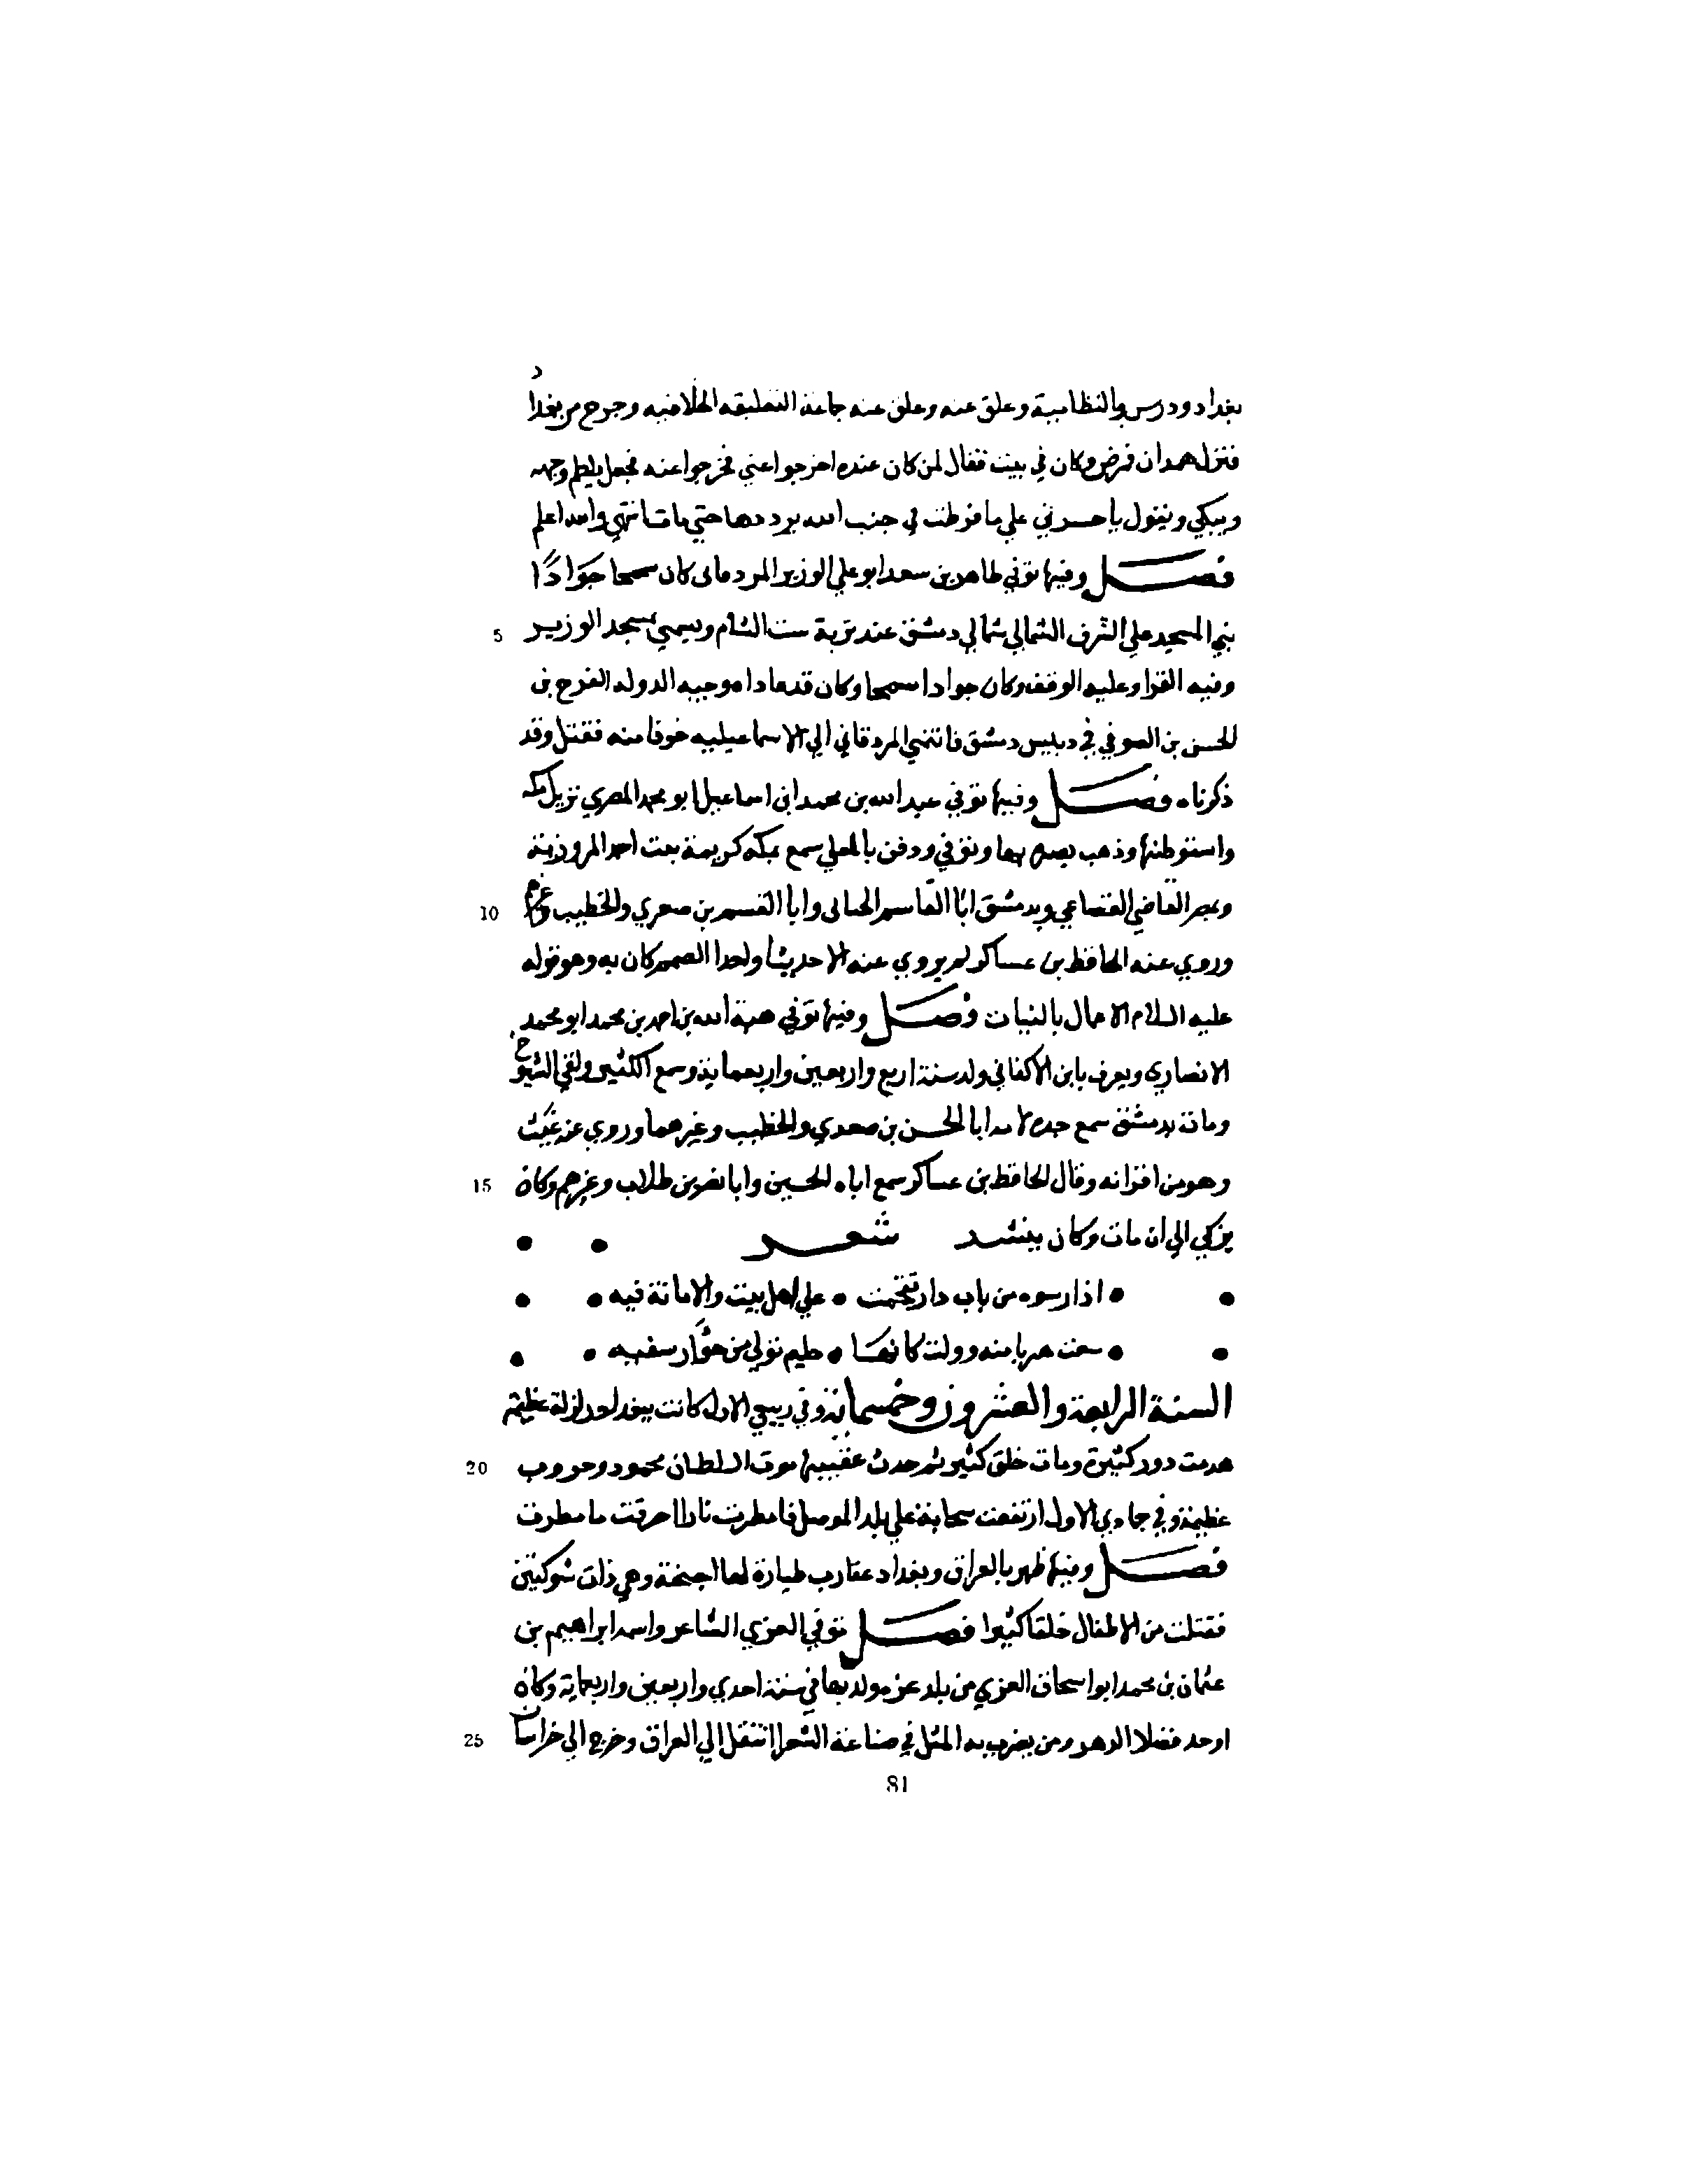 بغداد ودرس بالنظامية وعلق عنه وعلق عنه جماعة التعليقه الخلافيه وخرج من بغداد
فنزل همدان فمرض وكان في بيت فقال لمن كان عنده اخرجوا عني فخرجوا عنه فجعل يلطم وجهه
ويبكي ويقول يا حسرتي علي ما فرطت في جنب الله يرددها حتي مات انتهي والله اعلم
فصل وفيها توفي طاهر بن سعد ابو علي الوزير المردقاني كان سمحا جوادًا
5 بني المسجد علي الشرف الشمالي شمالي دمشق عند تربة ست الشام ويسمي بمسجد الوزير
وفيه القرا وعليه الوقف وكان جوادا سمحا وكان قد عاداه وجيه الدوله المفرح بن
الحسن بن الصوفي في دمشق فانتمي المردقاني الي الاسماعيليه خوفا منه فقتل وقد
ذكرناه فصل وفيها توفي عبد الله بن محمد ابن اسماعيل ابو محمد المصري نزيل مكه
واستوطنها وذهب بصره بها وتوفي ودفن بالمعلي سمع بمكه كريمة بنت احمد المروزية
10 وبمصر القاضي القضاعي وبدمشق ابا القاسم الحناي وابا القسم بن صصري والخطيب وغيرهم
وروي عنه الحافظ بن عساكر لم يروي عنه الا حديثا واحدا لصمم كان به وهو قوله
عليه السلام الاعمال بالنيات فصل وفيها توفي هبة الله بن احمد بن محمد ابو محمد
الانصاري ويعرف بابن الاكفاني ولد سنة اربع واربعين واربعماية وسمع الكثير ولقي الشيوخ
ومات بدمشق سمع جده لامه ابا الحسن بن صصري والخطيب وغيرهما وروي عنه غيث
15 وهو من اقرانه وقال الحافظ بن عساكر سمع اباه الحسين وابا نصر بن طلاب وغيرهم وكان
يزكي الي ان مات وكان ينشد شعر
اذا رسوه من باب دار تقحمت علي اهل بيت والامانة فيه
سعت هربا منه وولت كانها حليم تولي من جوار سفيه
السنة الرابعة والعشرون وخمسماية وفي ربيع الاول كانت ببغداد زلزلة عظيمة
20 هدمت دور كثيرة ومات خلق كثير ثم حدث عقيبها موت السلطان محمود وحروب
عظيمة وفي جمادي الاول ارتفعت سحابة علي بلد الموصل فامطرت نارا احرقت ما مطرت
فصل وفيها ظهر بالعراق وبغداد عقارب طيارة لها اجنحة وهي ذات شوكتين
فقتلت من الاطفال خلقا كثيرا فصل توفي الغزي الشاعر واسمه ابراهيم بن
عثمان بن محمد ابو اسحاق الغزي من بلد غزه مولده بها في سنة احدي واربعين واربعماية وكان
25 اوحد فضلا الدهر ومن يضرب به المثل في صناعة الشعر انتقل الي العراق وخرج الي خراسان
81